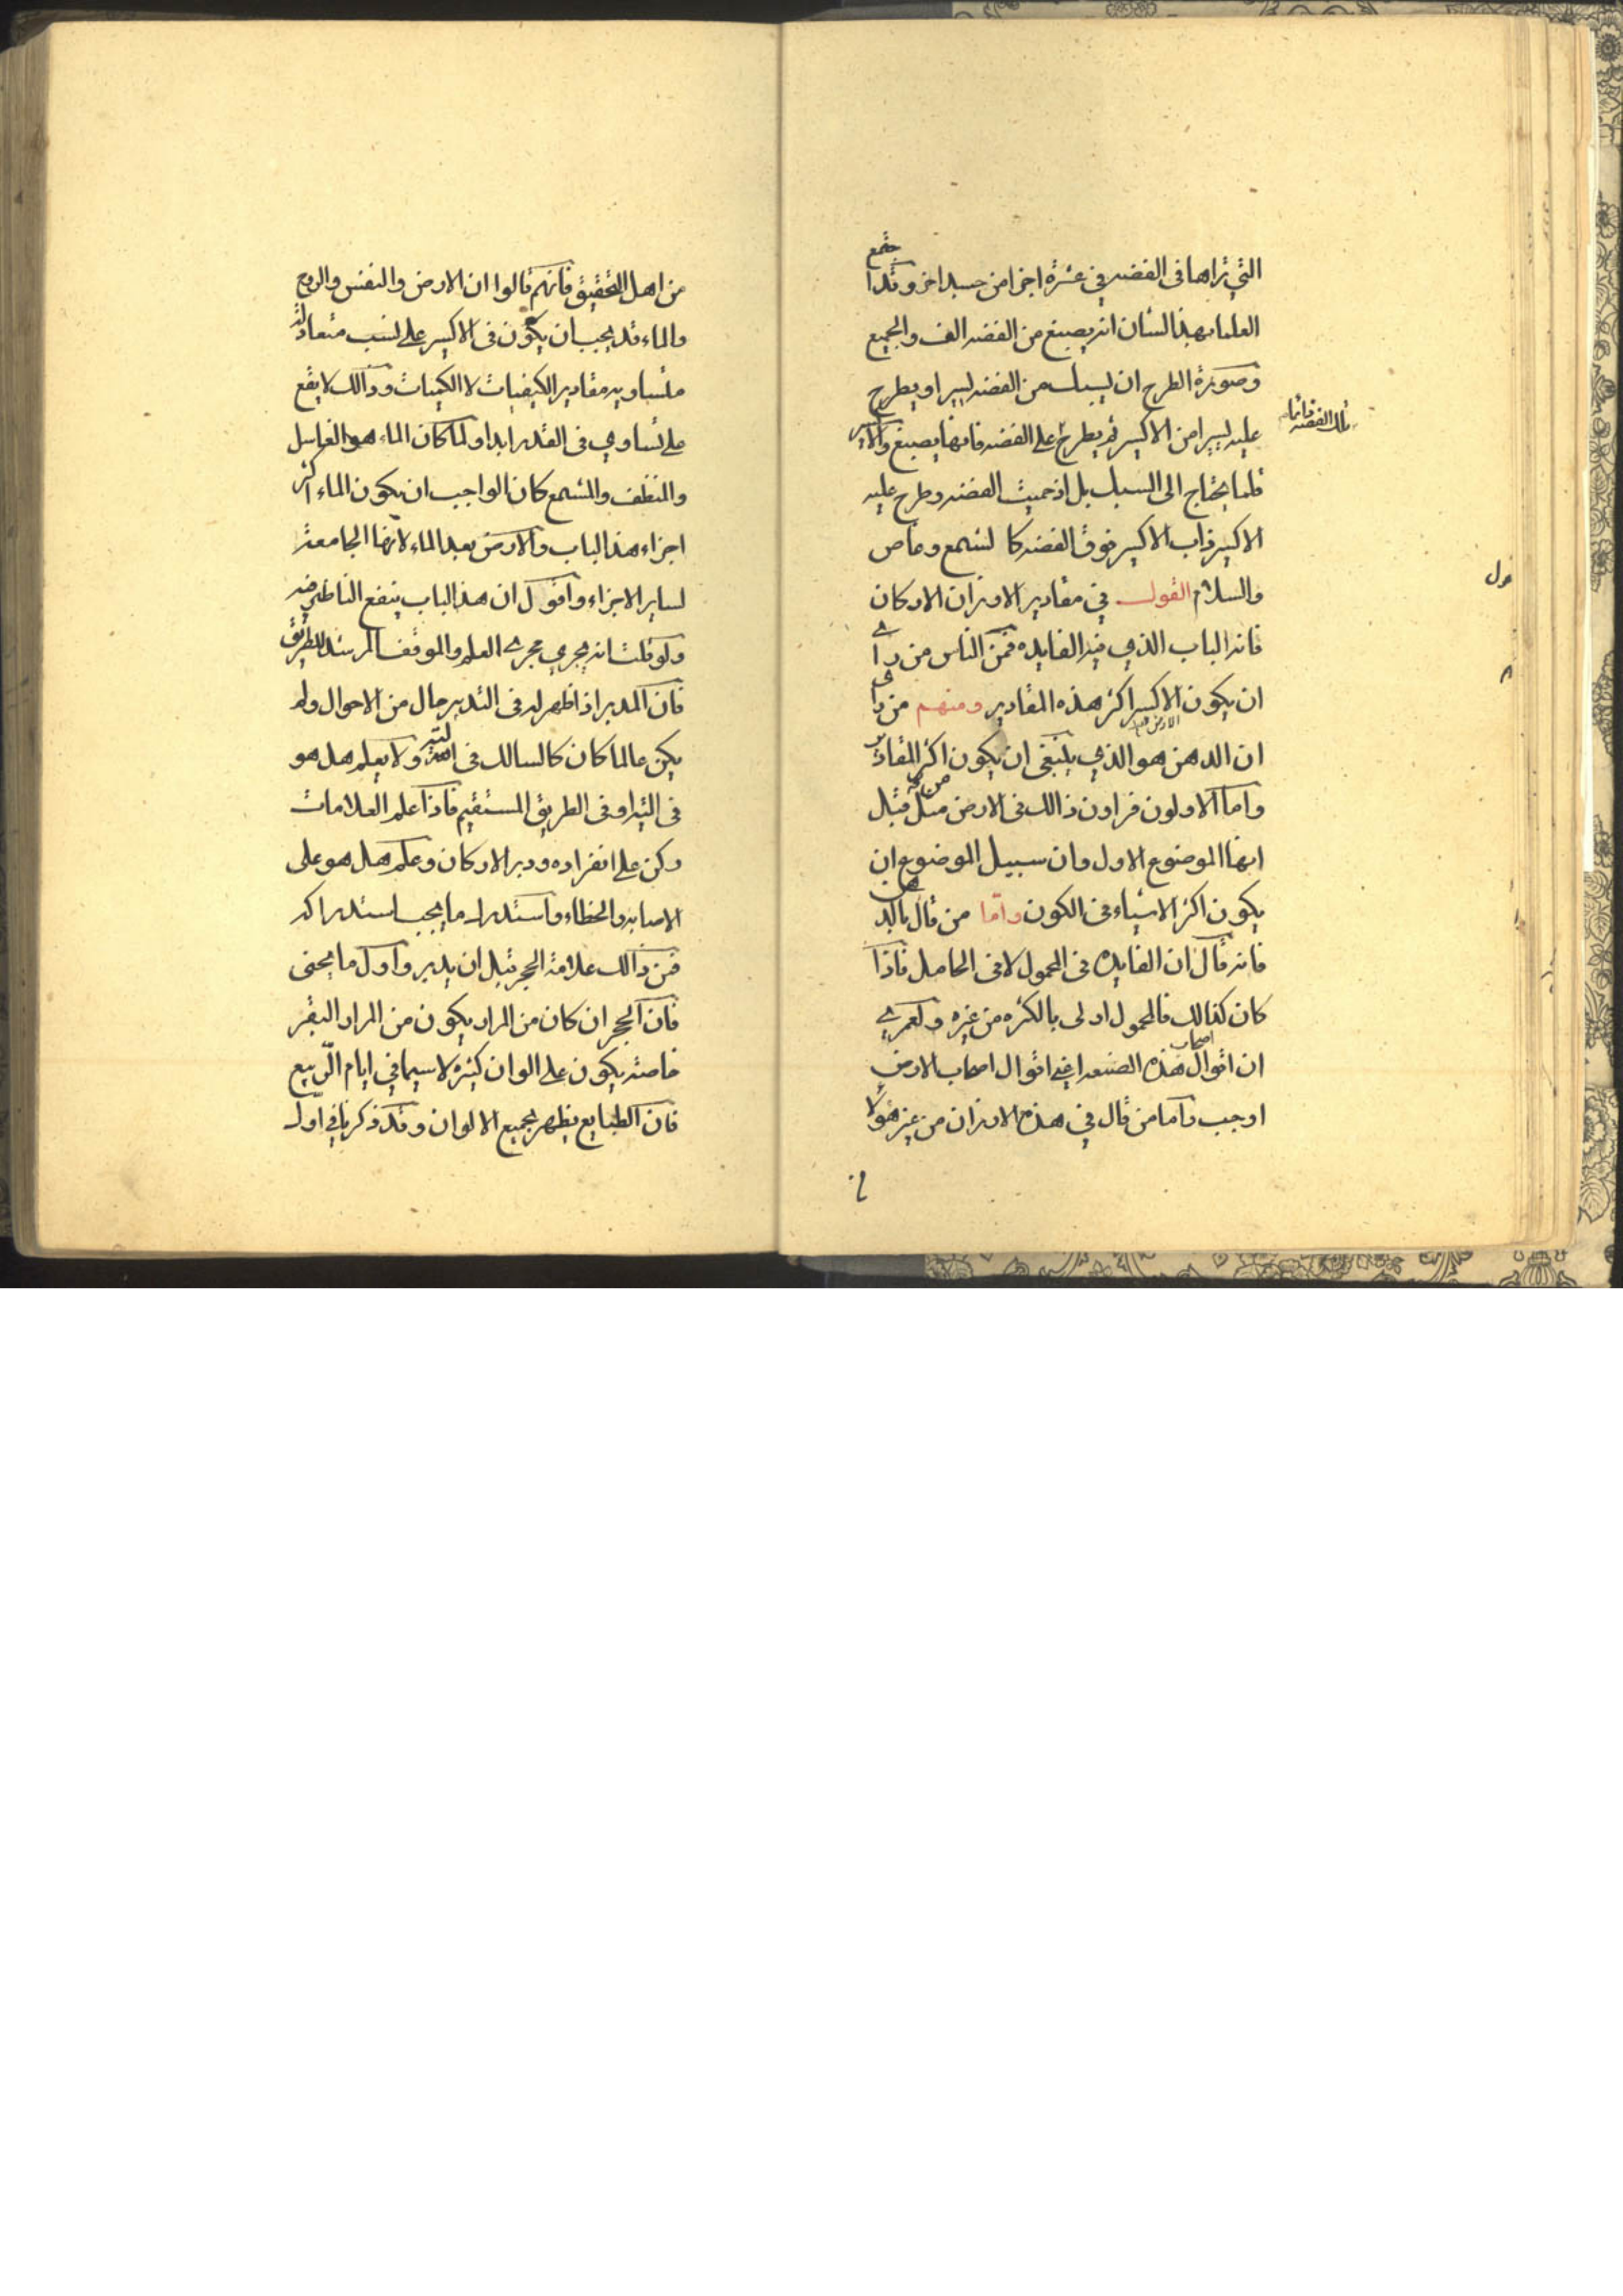 التي تراها في الفضه في عشرة اجزا من جسد اخر وقد اجتمع
العلما بهذا الشان انه يصبغ من الفضه الف والجميع
وصورة الطرح ان يسبك من الفضه يسيرا ويطرح
عليه يسيرا من الاكسير ثم يطرح على الفضه فانها يصبغ والاكسير
تلك الفضه قائما
قلما يحتاج الى السبك بل اذ حميت الفضه وطرح عليه
الاكسير ذاب الاكسير فوق الفضه كا لشمع وغاص
والسلام القول في مقادير الاوزان الاركان
فانه الباب الذي فيه الفايده فمن الناس من راى
ان يكون الاكسير اكثر هذه المقادير ومنهم من راى
ان الدهن هو الذي ينبغي ان يكون اكثر المقادير
واما الاولون فراون ذالك في الارض من قبل
انها الموضوع الاول وان سبيل الموضوع ان
يكون اكثر الاشياء في الكون واما من قال بالدهن
فانه قال ان الفايده في المحمول لا في الحامل فاذا
كان كذالك فالمحمول اولى بالكثره من غيره ولعمري
ان اقوال اصحاب هذه الصنعه اعني اقوال اصحاب الارض
اوجب واما من قال في هذه الاوزان من غير هؤلا
من اهل التحقيق فانهم قالوا ان الارض والنفس والروح
والماء قد يجب ان يكون في الاكسير على نسب متعادلة
متساويه مقادير الكيفيات لا الكميات وذالك لا يقع
على تساوي في القدر ابدا ولما كان الماء هو الغاسل
والمنظف والمشمع كان الواجب ان يكون الماء اكثر
اجزاء هذا الباب والارض بعد الماء لانها الجامعة
لساير الاجزاء واقول ان هذا الباب ينفع الناظر فيه
ولو قلت انه يجري مجرى العلم والموقف المرشد للطريق
فان المدبر اذا ظهر له في التدبير حال من الاحوال ولم
يكن عالما كان كالسالك في التيه ولا يعلم هل هو
في التيه او في الطريق المستقيم فاذا علم العلامات
ركن على انفراده ودبر الاركان وعلم هل هو على
الاصابه والخطاء واستدرك ما يجب استدراكه
فمن ذالك علامة الحجر قبل ان يدبر واول ما يجنى
فان الحجر ان كان من المرار يكون من المرار البقر
خاصة يكون على الوان كثيره لا سيما في ايام الربيع
فان الطبايع يظهر بجميع الالوان وقد ذكرنا في اول